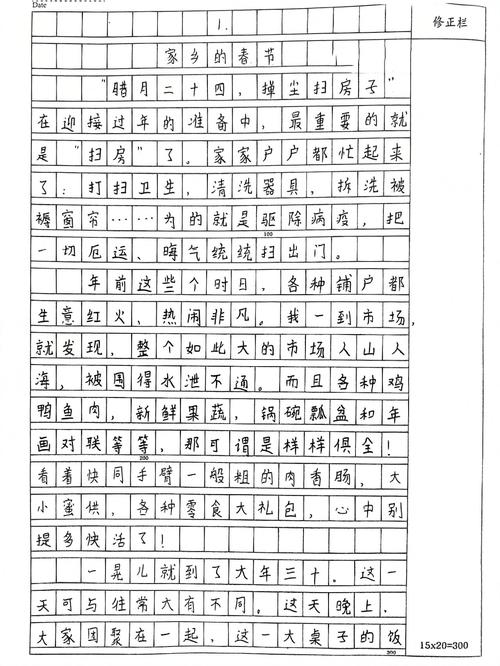 Date
1.
修正栏
家乡的春节
“腊月二十四，掸尘扫房子”
在迎接过年的准备中，最重要的就
是“扫房”了。家家户户都忙起来
了：打扫卫生，清洗器具，拆洗被
褥窗帘……为的就是驱除病疫，把
100
一切厄运、晦气统统扫出门。
年前这些个时日，各种铺户都
生意红火、热闹非凡。我一到市场，
就发现，整个如此大的市场人山人
海，被围得水泄不通。而且各种鸡
鸭鱼肉，新鲜果蔬，锅碗瓢盆和年
画对联等等，那可谓是样样俱全！
200
看着快同手臂一般粗的肉香肠，大
小蜜供，各种零食大礼包，心中别
提多快活了！
一晃儿就到了大年三十。这一
天可与往常大有不同。这天晚上，
大家团聚在一起，这一大桌子的饭
300
15x20=300